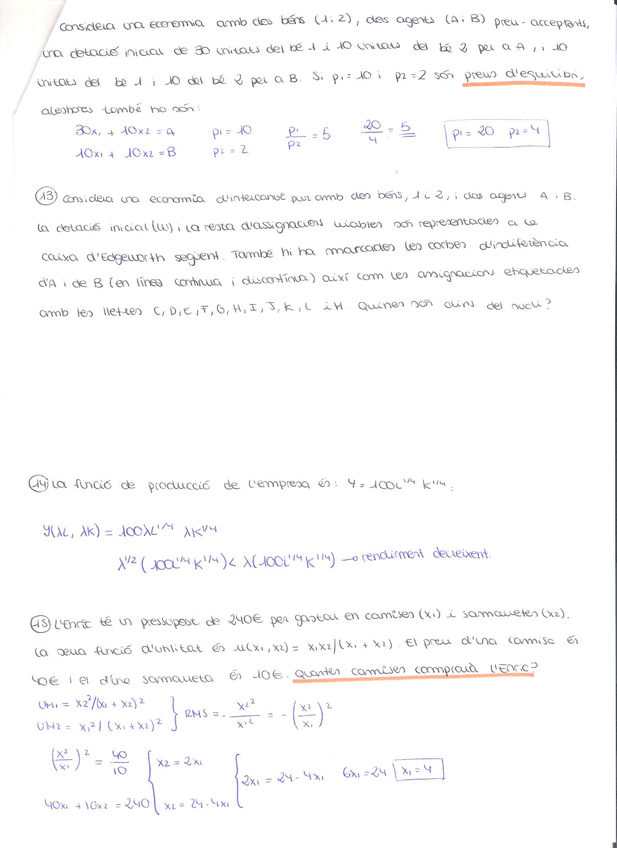 Considera una economia amb dos béns (1 i 2), dos agents (A i B) preu-acceptants,
una dotació inicial de 30 unitats del bé 1 i 10 unitats del bé 2 per a A, i 10
unitats del bé 1 i 10 del bé 2 per a B. Si p1=10 i p2=2 són preus d'equilibri,
aleshores també ho són:
30x1 + 10x2 = A p1=10 p1/p2 = 5 20/4 = 5 p1=20 p2=4
10x1 + 10x2 = B p2=2
13 Considera una economia d'intercanvi pur amb dos béns, 1 i 2, i dos agents A i B.
La dotació inicial (W) i la resta d'assignacions viables són representades a la
caixa d'Edgeworth següent. També hi ha marcades les corbes d'indiferència
d'A i de B (en línea contínua i discontínua) així com les assignacions etiquetades
amb les lletres C, D, E, F, G, H, I, J, K, L i M. Quines són dins del nucli?
14 La funció de producció de l'empresa és: Y = 100L^1/4 K^1/4:
Y(λL, λK) = 100λL^1/4 λK^1/4
λ^1/2 (100L^1/4 K^1/4) < λ(100L^1/4 K^1/4) → rendiment decreixent.
15 L'Enric té un pressupost de 240€ per gastar en camises (x1) i samarretes (x2).
La seua funció d'utilitat és u(x1, x2) = x1x2/(x1 + x2). El preu d'una camisa és
40€ i el d'una samarreta és 10€. Quantes camises comprarà l'Enric?
UM1 = x2²/(x1 + x2)² } RMS = - x2²/x1² = - (x2/x1)²
UM2 = x1²/(x1 + x2)²
(x2/x1)² = 40/10 { x2 = 2x1 { 2x1 = 24 - 4x1 6x1 = 24 x1 = 4
40x1 + 10x2 = 240 x2 = 24 - 4x1